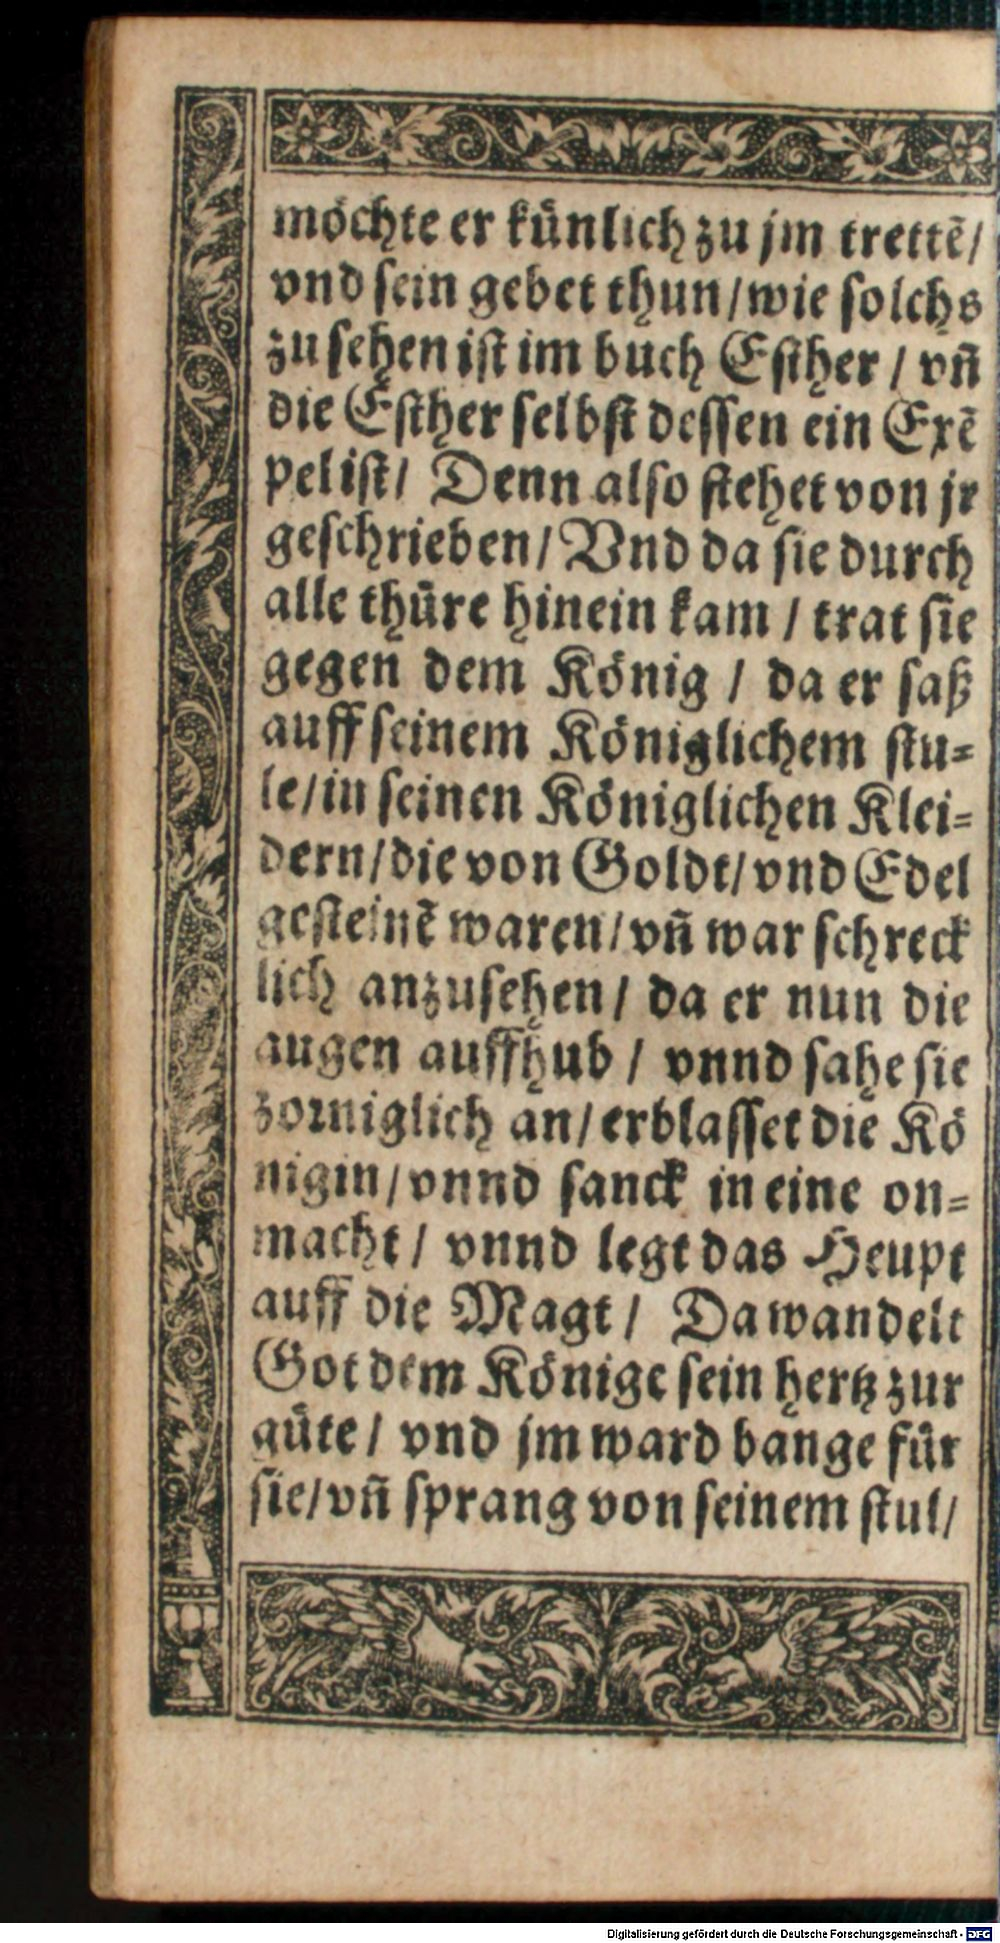 möchte er künlich zu jm trettẽ/
vnd sein gebet thun/wie solchs
zu sehen ist im buch Esther / vñ
die Esther selbst dessen ein Exẽ
pel ist/ Denn also stehet von jr
geschrieben/ Vnd da sie durch
alle thüre hinein kam / trat sie
gegen dem König / da er saß
auff seinem Königlichem stu-
le/in seinen Königlichen Klei-
dern/die von Goldt/vnd Edel
gesteinẽ waren/vñ war schreck
lich anzusehen/ da er nun die
augen auffhub / vnnd sahe sie
zorniglich an/erblasset die Kö
nigin/vnnd sanck in eine on-
macht/ vnnd legt das Heupt
auff die Magt/ Da wandelt
Got dem Könige sein hertz zur
güte/ vnd jm ward bange für
sie/vñ sprang von seinem stul/
Digitalisierung gefördert durch die Deutsche Forschungsgemeinschaft - DFG